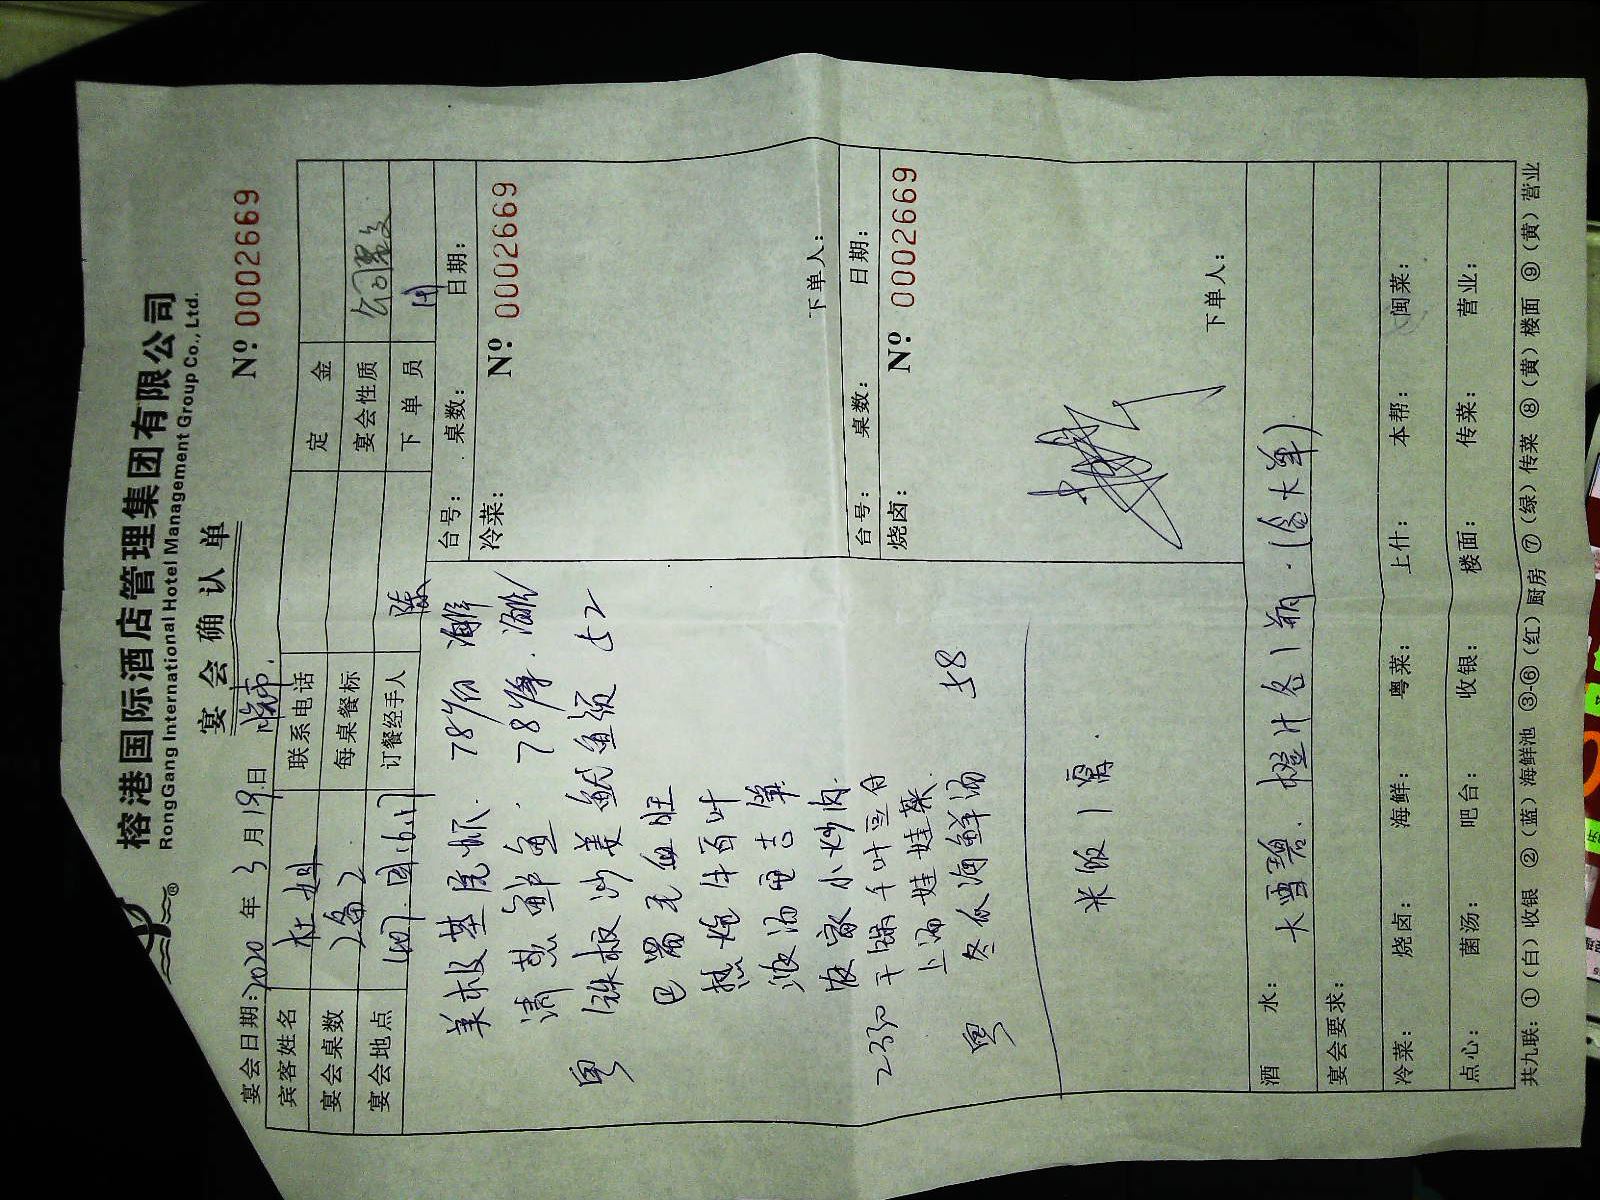 榕港国际酒店管理集团有限公司
RongGang International Hotel Management Group Co., Ltd.
®
宴会确认单
Nº: 0002669
宴会日期: 2020 年 3 月 19 日 晚市
宾客姓名 杜姐 联系电话 定金
宴会桌数 每桌餐标 宴会性质
宴会地点 订餐经手人 陈 下单员
台号: 桌数: 日期:
冷菜: Nº: 0002669
78
清蒸鲜鱼 78
粤 铁板沙姜鱿鱼须 52
巴蜀毛血旺
热炝牛百叶
农家小炒肉
干锅千叶豆付
上汤娃娃菜
粤 冬瓜海鲜汤 58
米饭1
下单人:
台号: 桌数: 日期:
烧卤: Nº: 0002669
下单人:
酒水: 大雪碧. 橙汁各1瓶.
宴会要求:
冷菜: 烧卤: 海鲜: 粤菜: 上什: 本帮: 闽菜:
点心: 菌汤: 吧台: 收银: 楼面: 传菜: 营业:
共九联: ①(白)收银 ②(蓝)海鲜池 ③-⑥(红)厨房 ⑦(绿)传菜 ⑧(黄)楼面 ⑨(黄)营业